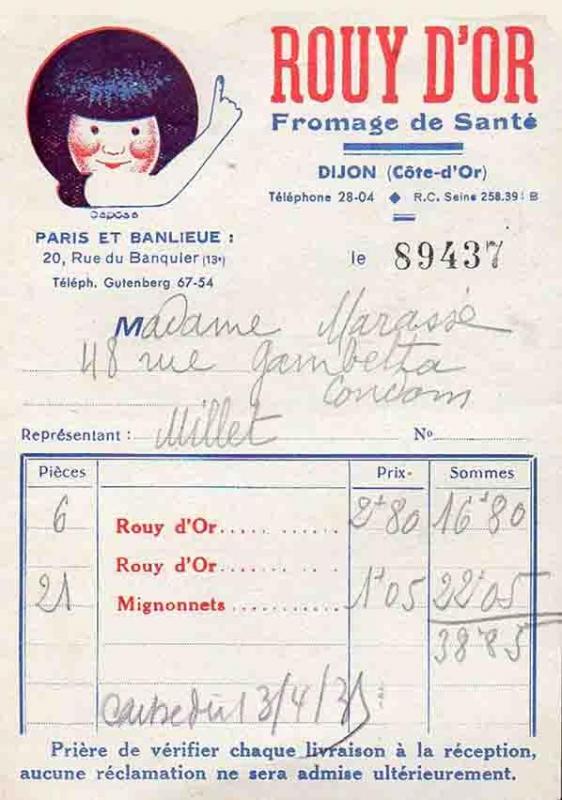 ROUY D'OR
Fromage de Santé
DIJON (Côte-d'Or)
Téléphone 28-04 ◆ R.C. Seine 258.391 B
PARIS ET BANLIEUE :
20, Rue du Banquier (13e)
Téléph. Gutenberg 67-54
le 89437
Madame Marassé
48 rue Gambetta
Condom
Représentant : Millet No
Pièces Prix Sommes
6 Rouy d'Or 2f80 16f80
Rouy d'Or
21 Mignonnets 1f05 22f05
38f85
13/4/35
Prière de vérifier chaque livraison à la réception,
aucune réclamation ne sera admise ultérieurement.